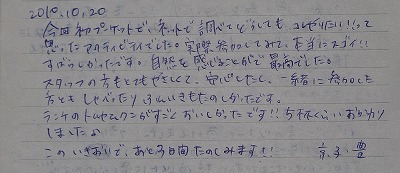 2010.10.20
今回初プーケットで、ネットで調べてどうしてもコレやりたい!!って
思ったアクティビティでした。実際参加してみて、本当にスゴイ!!
すばらしかったです。自然を感じることができ最高でした。
スタッフの方もとてもやさしくて、安心したし、一緒に参加した
方ともしゃべったりふんいきもたのしかったです。
ランチのトムヤムクンがすごくおいしかったです!! 5杯くらいおかわり
しました♪
このいきおいで、あと3日間たのしみます!!
京子・豊